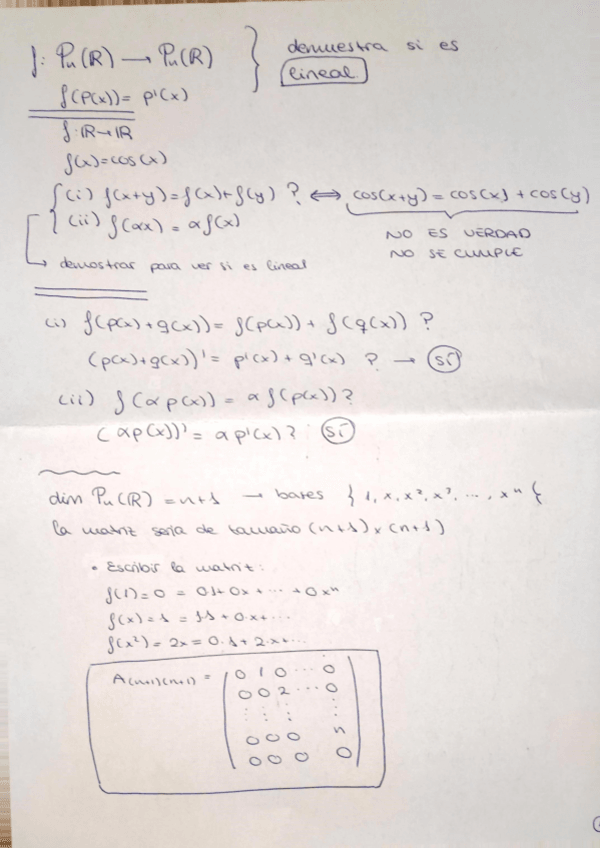 f: Pn(ℝ) → Pn(ℝ) } demuestra si es
f(P(x)) = p'(x) lineal.
f: ℝ → ℝ
f(x) = cos(x)
(i) f(x+y) = f(x) + f(y) ? ⟺ cos(x+y) = cos(x) + cos(y)
(ii) f(αx) = α f(x) NO ES VERDAD
NO SE CUMPLE
↳ demostrar para ver si es lineal
(i) f(p(x) + g(x)) = f(p(x)) + f(g(x)) ?
(p(x) + g(x))' = p'(x) + g'(x) ? → sí
(ii) f(α p(x)) = α f(p(x)) ?
(α p(x))' = α p'(x) ? sí
dim Pn(ℝ) = n+1 → bases { 1, x, x², x³, ..., xⁿ {
la matriz sería de tamaño (n+1) x (n+1)
• Escribir la matriz:
f(1) = 0 = 0·1 + 0x + ... + 0xⁿ
f(x) = 1 = 1·1 + 0·x + ...
f(x²) = 2x = 0·1 + 2·x + ...
A(n+1)(n+1) = ( 0 1 0 ... 0
0 0 2 ... 0
⋮ ⋮ ⋮ ⋮
0 0 0 n
0 0 0 0 )